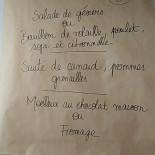 Salade de gésiers
ou
Bouillon de volaille, poulet
soja et citronnelle.
Sauté de canard, pommes
grenailles
Moelleux au chocolat maison
ou
Fromage